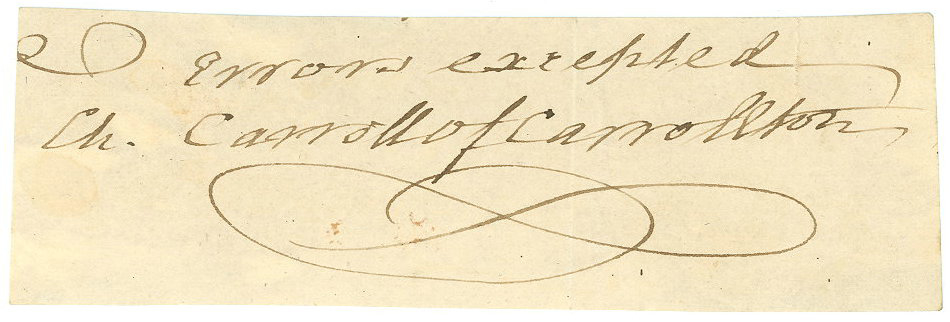 Errors excepted
Ch. Carroll of Carrollton